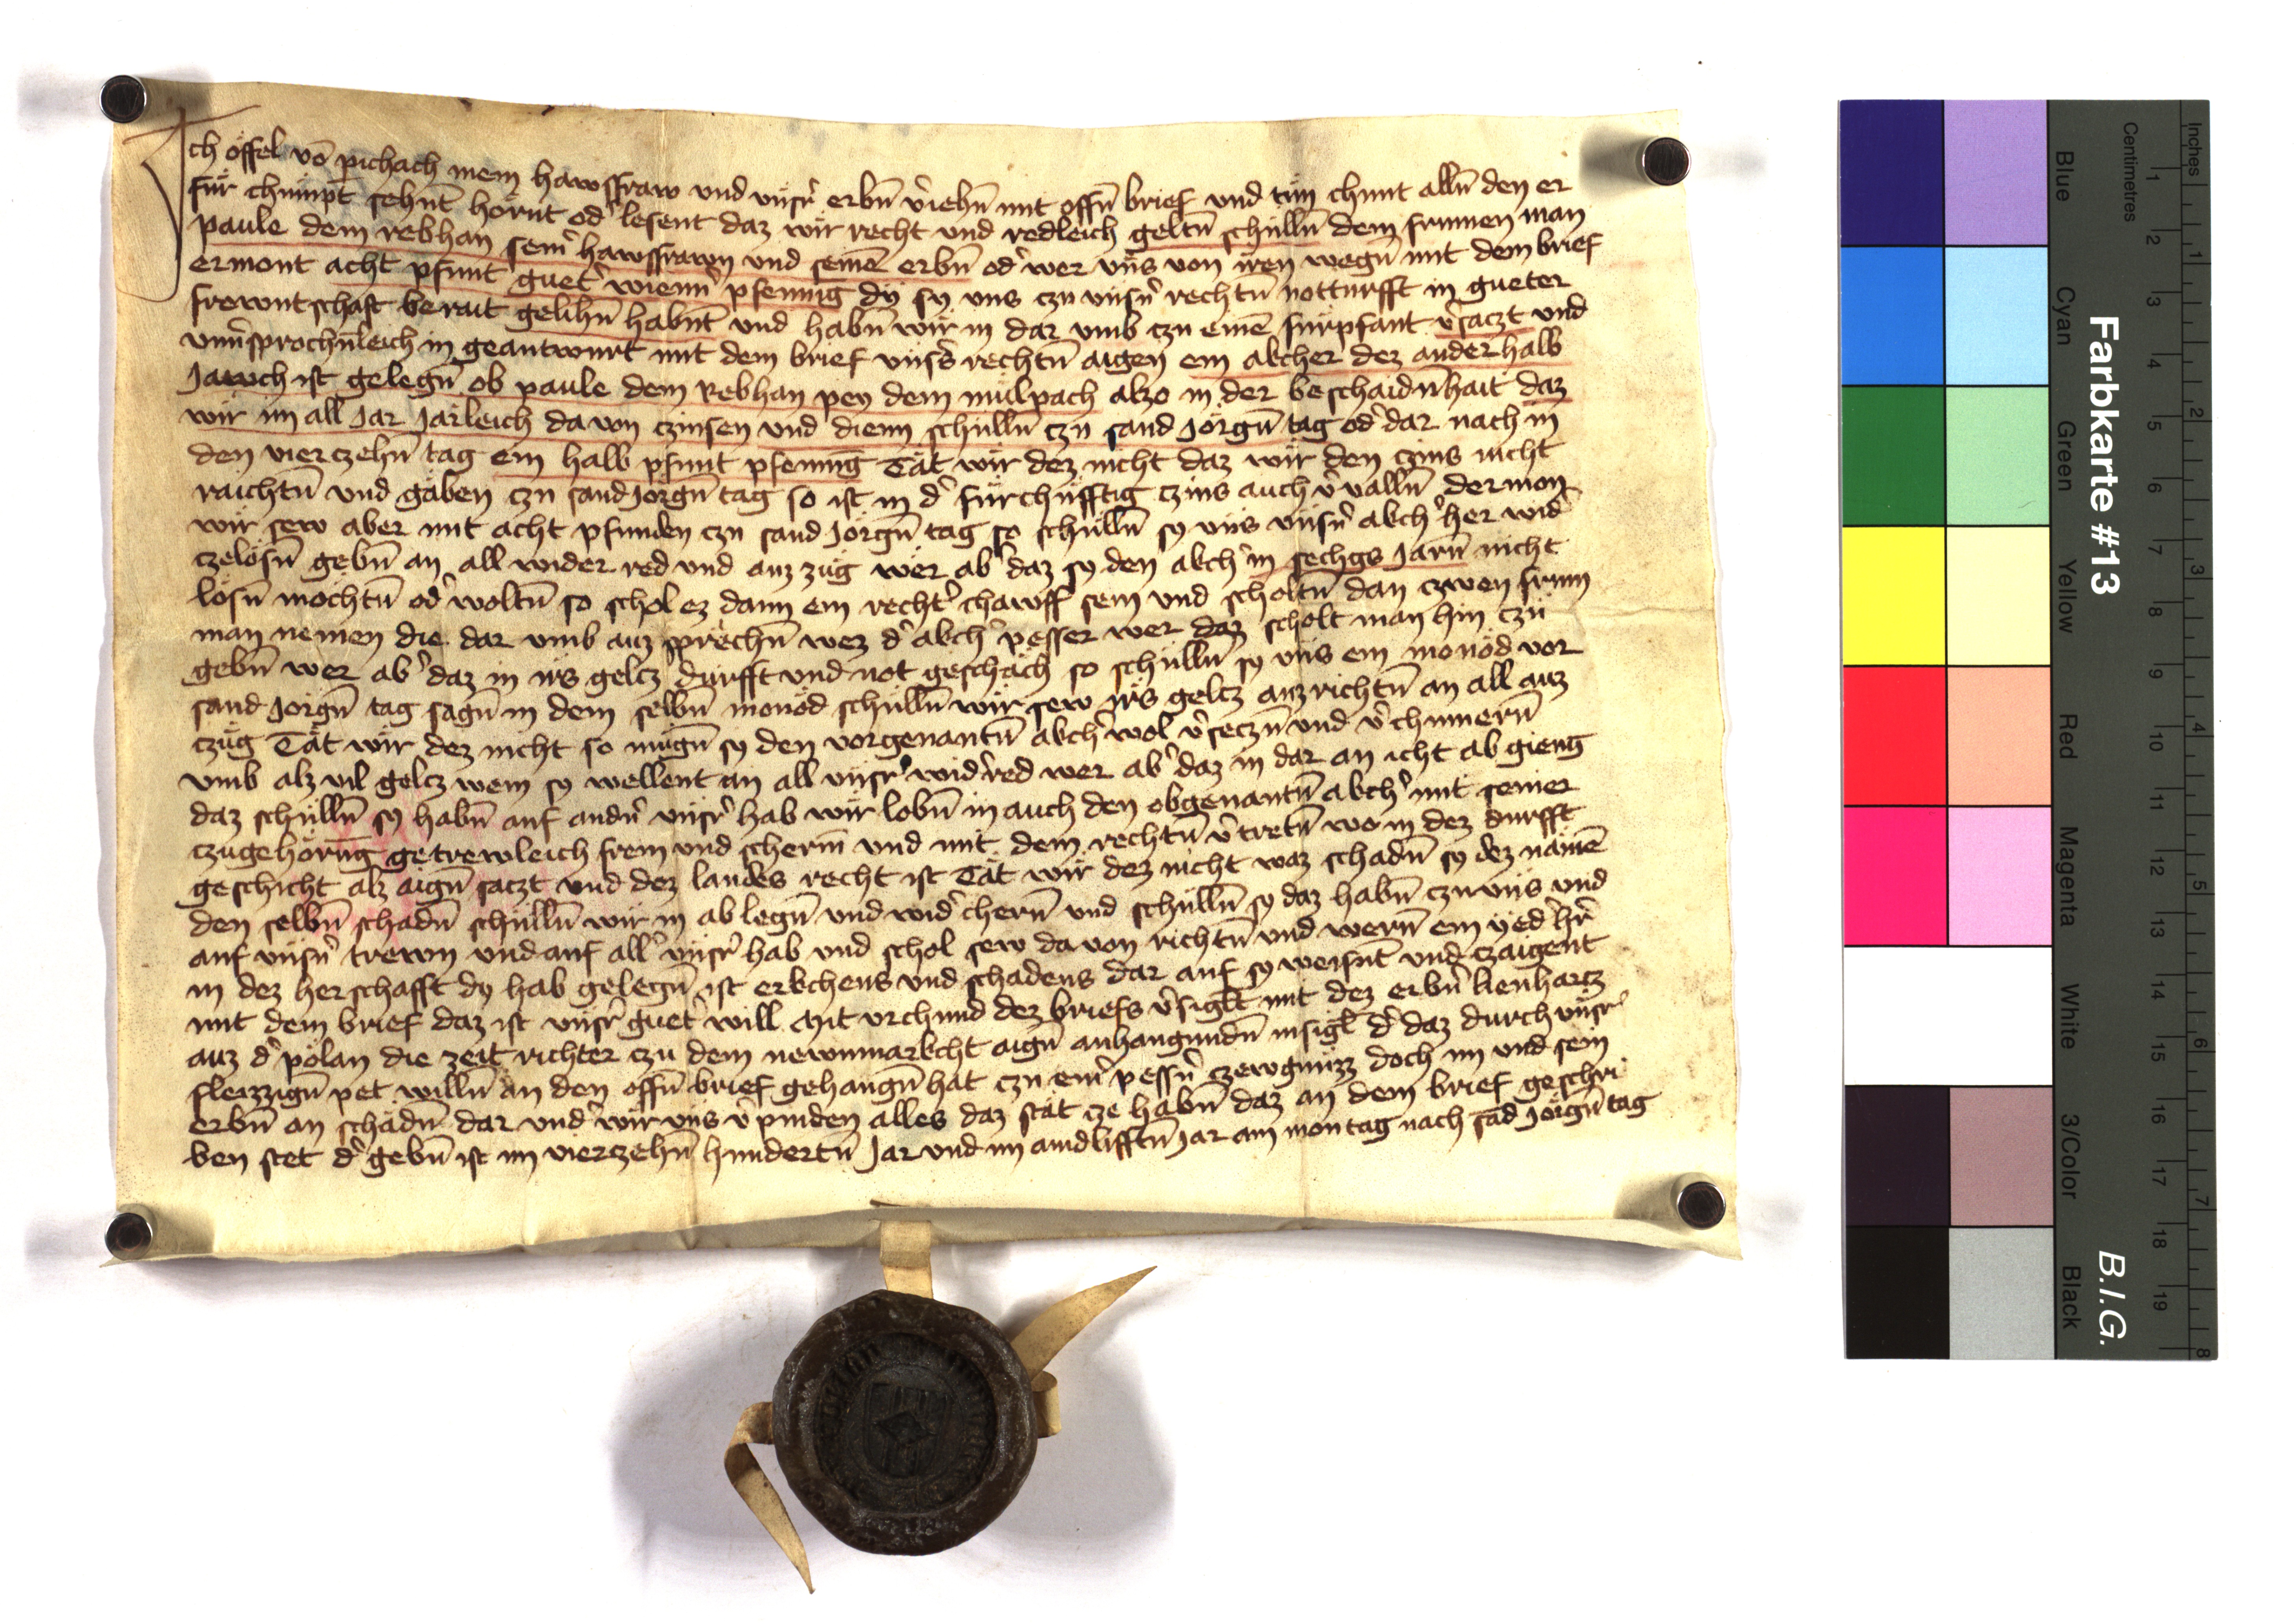 Ich öffel võ pichach mein hawsffraw und vnsr̉ erbn̄ v̉iehn̄ mit offn̄ brief und tün chunt alln̄ den er
für chümpt sehnt hörnt od̉ lesent daz wir recht und redleich geltn̄ schülln̄ dem frumen man
paule dem rebhan sein̉ hawsffrawn und seinē erbn̄ od̉ wer vns von iren wegn̄ mit dem brief
ermont acht pfunt guet̉ wienn̉ pfennig dy sy vns czu vnsn̉ rechtn̄ notturfft in gueter
frewntschaft berait gelihn̄ habnt und habn̄ wir in dar umb czu einē fürpfant v̉saczt und
vnu̓sprochn̄leich in geantwurt mit dem brief vnss̉ rechtn̄ aigen ein akcher dez anderhalb
Jawch ist gelegn̄ ob paule dem Rebhan pey dem mülpach alzo in der beschaidnhait daz
wir im all Jar Jarleich da von czinsen und dienn schülln̄ czu sand Jörgn̄ tag od̉ dar nach in
den vierczehn̄ tag ein halb pfunt pfennig Tät wir dez nicht daz wir den czins nicht
raichtn̄ und gäben czu sand Jorgn̄ tag so ist in d̉ fürchüfftig czins auch v̉valln̄ dermon
wir sew aber mit acht pfunden czu sand Jörgn̄ tag so schülln̄ sy vns vnsn̉ akch̉ her wid̉
czelösn̄ gebn̄ an all wider red und auz zug wer ab̉ daz sy den akch̉ in sechgs Jarn̄ nicht
lösn̄ möchtn̄ od̉ woltn̄ so schol ez dann ein recht̉ chawff sein und scholtn̄ dan czwen frum
man nemen die dar umb auz sprechn̄ wez d̉ akch̉ pesser wer daz scholt man hin czü
gebn̄ wer ab̉ daz in irs gelcz durfft und not geschäch so schülln̄ sy vns ein monöd vor
sand Jörgn̄ tag sagn̄ in dem selbn̄ monöd schülln̄ wir sew irs gelcz auzrichtn̄ an all auz
czüg Tät wir dez nicht so mügn̄ sy den vorgenantn̄ akch̉ wol v̉seczn̄ und v̉chumern̄
umb alz vil gelcz wem sy wellent an all vnsr̉ wid̉red wer ab̉ daz in dar an icht ab gieng
daz schülln̄ sy habn̄ auf andn̉ vnsr̉ hab wir lobn̄ in auch den obgenantn̄ akch̉ mit seiner
czugehörug getrewleich frein und scherm̄ und mit dem rechtn̄ v̉tretn̄ wo in dez durfft
geschicht alz aign̄ saczt und dez landes recht ist Tät wir dez nicht waz schadn̄ sy dez nämē
den selbn̄ schadn̄ schülln̄ wir in ab legn̄ und wid̉chern̄ und schülln̄ sy daz habn̄ czu vns und
auf vnsn̉ trewn und auf all̉ vnsr̉ hab und schol sew da von richtn̄ und wern̄ ein yed̉ hr̉
in dez herschafft dy hab gelegn̄ ist erkchens und schadens dar auf sy weisnt und czaigent
mit dem brief daz ist vnsr̉ guet̉ will Mit vrchund dez briefs v̉siglt mit dez erbn̉ lienharcz
auz d̉ pölan die zeit richter czu dem newnmarkcht aign̄ anhangundn̄ insigl d̉ daz durch vnsr̉
fleizzign̄ pet willn̄ an den offn̄ brief gehangn̄ hat czu ein̉ pessn̉ czewgnüzz doch im und sein
erbn̄ an schadn̄ dar und̉ wir vns v̉pinden alles daz stät cze habn̄ daz an dem brief geschri
ben stet d̉ gebn̄ ist im vierczehn̄ hundertn̄ Jar und im aindlifftn̄ Jar am montag nach sād Jörgn̄ tag
Farbkarte #13
B.I.G.
Inches
Centimetres
1 2 3 4 5 6 7 8
1 2 3 4 5 6 7 8 9 10 11 12 13 14 15 16 17 18 19
Blue
Cyan
Green
Yellow
Red
Magenta
White
3/Color
Black